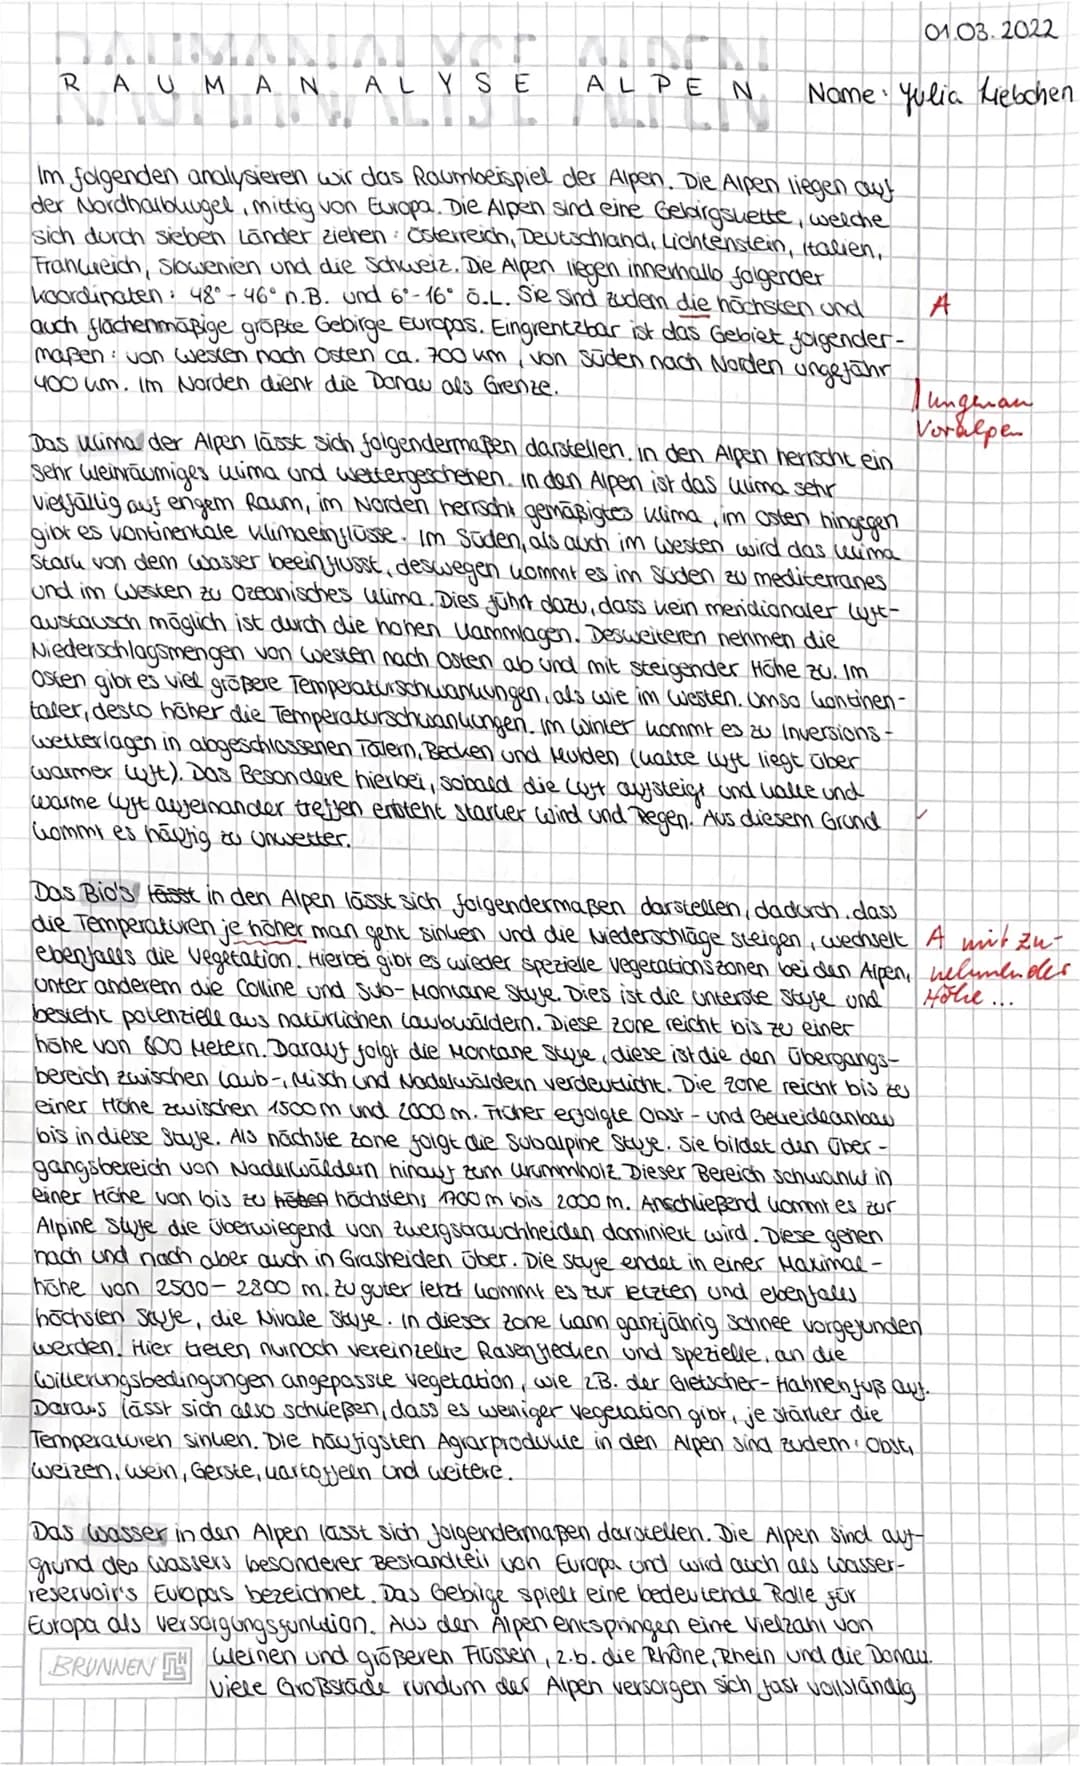 01.03.2022
RAUMANALYSE ALPEN
Name: Yulia Liebchen
Im folgenden analysieren wir das Raumbeispiel der Alpen. Die Alpen liegen auf
der Nordhalbkugel, mittig von Europa. Die Alpen sind eine Gebirgskette, welche
sich durch sieben Länder ziehen: Österreich, Deutschland, Lichtenstein, Italien,
Frankreich, Slowenien und die Schweiz. Die Alpen liegen innerhalb folgender
Koordinaten: 48°-46° n.B. und 6°-16° ö.L. Sie sind zudem die höchsten und
A
auch flächenmäßige größte Gebirge Europas. Eingrentzbar ist das Gebiet folgender-
maßen: von Westen nach Osten ca. 700 km, von Süden nach Norden ungefähr
400 km. Im Norden dient die Donau als Grenze.
ungenau
Voralpen
Das Klima der Alpen lässt sich folgendermaßen darstellen. In den Alpen herrscht ein
sehr kleinräumiges Klima und Wettergeschehen. In den Alpen ist das Klima sehr
vielfältig auf engem Raum, im Norden herrscht gemäßigtes Klima, im Osten hingegen
gibt es kontinentale Klimaeinflüsse. Im Süden, als auch im Westen wird das Klima
stark von dem Wasser beeinflusst, deswegen kommt es im Süden zu mediterranes
und im Westen zu Ozeanisches Klima. Dies führt dazu, dass kein meridionaler Luft-
austausch möglich ist durch die hohen Kammlagen. Desweiteren nehmen die
Niederschlagsmengen von Westen nach Osten ab und mit steigender Höhe zu. Im
Osten gibt es viel größere Temperaturschwankungen, als wie im Westen. Umso kontinen-
taler, desto höher die Temperaturschwankungen. Im Winter kommt es zu Inversions-
wetterlagen in abgeschlossenen Tälern, Becken und Mulden (kalte Luft liegt über
warmer Luft). Das Besondere hierbei, sobald die Luft aufsteigt und kalte und
warme Luft aufeinander treffen entsteht starker Wind und Regen. Aus diesem Grund
kommt es häufig zu Unwetter.
Das Bio's lässt in den Alpen lässt sich folgendermaßen darstellen, dadurch, dass
die Temperaturen je höher man geht sinken und die Niederschläge steigen, wechselt
A mit zu-
ebenfalls die Vegetation. Hierbei gibt es wieder spezielle Vegetationszonen bei den Alpen,
nehmender
unter anderem die Colline und Sub-Montane Stufe. Dies ist die unterste Stufe und
Höhe...
besteht potenziell aus natürlichen Laubwäldern. Diese Zone reicht bis zu einer
höhe von 800 Metern. Darauf folgt die Montane Stufe, diese ist die den Übergangs-
bereich zwischen Laub-, Misch und Nadelwäldern verdeutlicht. Die Zone reicht bis zu
einer Höhe zwischen 1500m und 2000m. Früher erfolgte Obst- und Getreideanbau
bis in diese Stufe. Als nächste Zone folgt die Subalpine Stufe. Sie bildet den Über-
gangsbereich von Nadelwäldern hinauf zum Krummholz. Dieser Bereich schwankt in
einer Höhe von bis zu höhen höchstens 1700m bis 2000m. Anschließend kommt es zur
Alpine Stufe die überwiegend von Zwergstrauchheiden dominiert wird. Diese gehen
nach und nach aber auch in Grasheiden über. Die Stufe endet in einer Maximal-
höhe von 2500-2800 m. Zu guter letzt kommt es zur letzten und ebenfalls
höchsten Stufe, die Nivale Stufe. In dieser Zone kann ganzjährig Schnee vorgefunden
werden. Hier treten nurnoch vereinzelte Rasenflecken und spezielle, an die
Witterungsbedingungen angepasste Vegetation, wie z.B. der Gletscher-Hahnenfuß auf.
Daraus lässt sich also schließen, dass es weniger Vegetation gibt, je stärker die
Temperaturen sinken. Die häufigsten Agrarprodukte in den Alpen sind zudem: Obst,
Weizen, Wein, Gerste, Kartoffeln und weitere.
Das Wasser in den Alpen lässt sich folgendermaßen darstellen. Die Alpen sind auf-
grund des Wassers besonderer Bestandteil von Europa und wird auch als Wasser-
reservoir's Europas bezeichnet. Das Gebirge spielt eine bedeutende Rolle für
Europa als Versorgungsfunktion. Aus den Alpen entspringen eine Vielzahl von
kleinen und größeren Flüssen, z.b. die Rhône, Rhein und die Donau.
BRUNNEN
Viele Großstäde rundum der Alpen versorgen sich fast vollständig